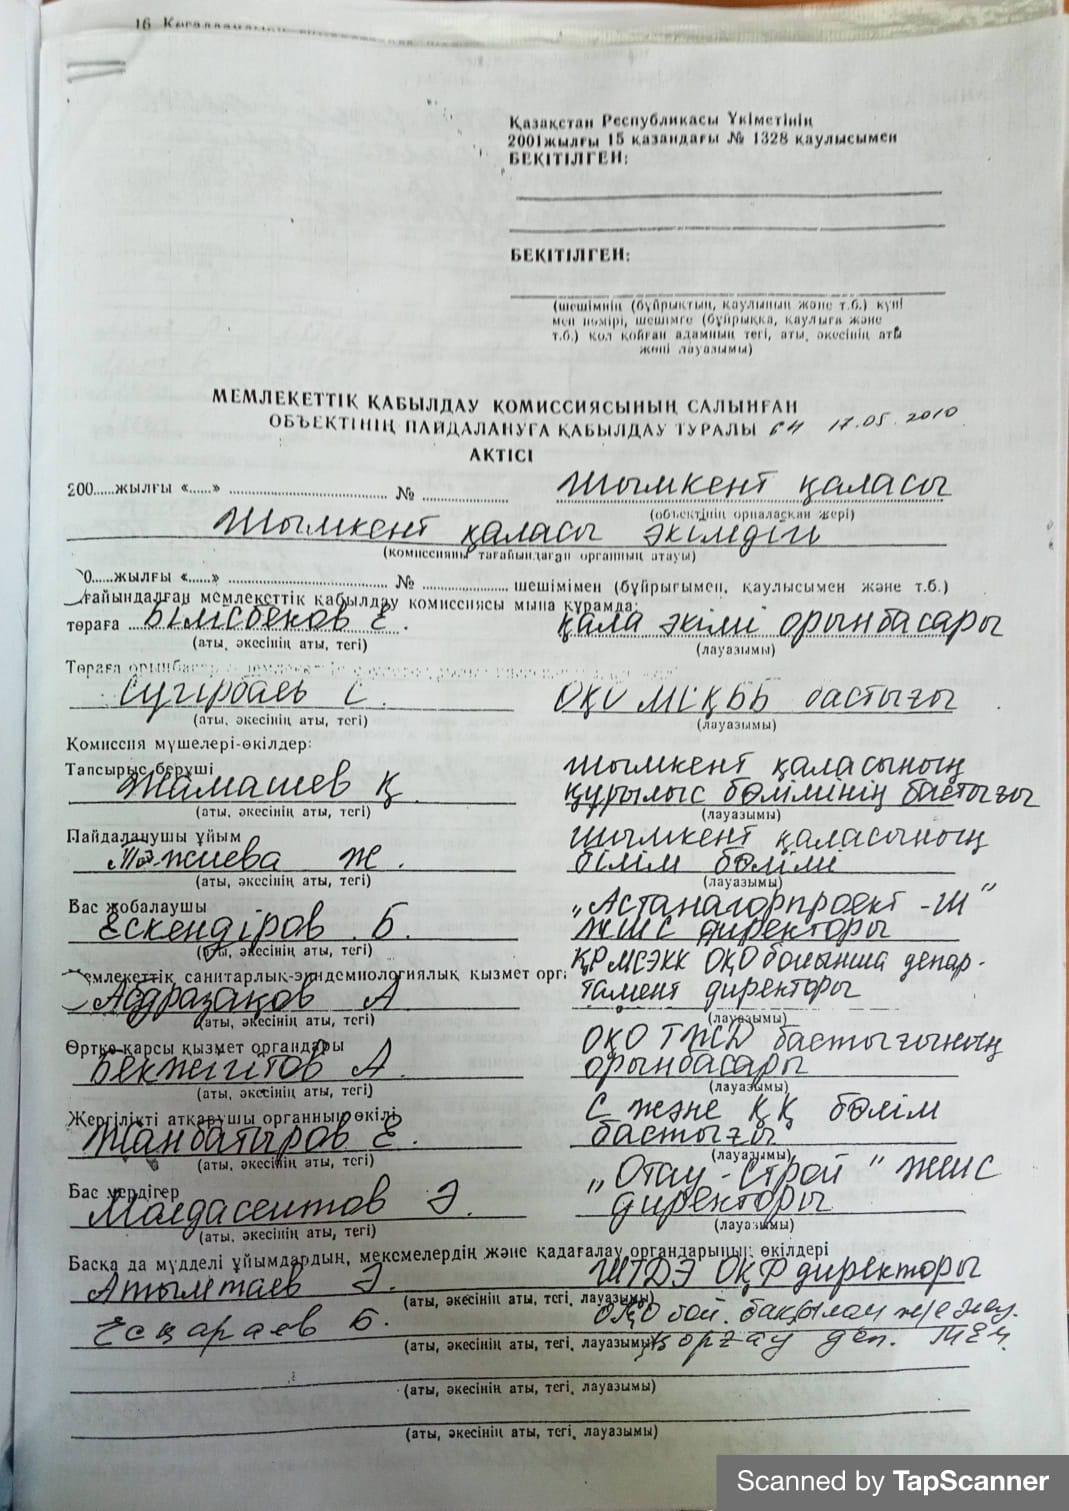 16
Қазақстан Республикасы Үкіметінің
2001жылғы 15 қазандағы № 1328 қаулысымен
БЕКІТІЛГЕН:
БЕКІТІЛГЕН:
(шешімнің (бұйрықтың, қаулының және т.б.) күні
мен нөмірі, шешімге (бұйрыққа, қаулыға және
т.б.) қол қойған адамның тегі, аты, әкесінің аты
және лауазымы)
МЕМЛЕКЕТТІК ҚАБЫЛДАУ КОМИССИЯСЫНЫҢ САЛЫНҒАН
ОБЪЕКТІНІҢ ПАЙДАЛАНУҒА ҚАБЫЛДАУ ТУРАЛЫ 64 17.05.2010
АКТІСІ
200.....жылғы «......» .......................... № ............... Шымкент қаласы
(объектінің орналасқан жері)
Шымкент қаласы әкімдігі
(комиссияны тағайындаған органның атауы)
0.....жылғы «......» .......................... № ............... шешімімен (бұйрығымен, қаулысымен және т.б.)
ғайындалған мемлекеттік қабылдау комиссиясы мына құрамда:
төраға Е. қала әкімі орынбасары
(аты, әкесінің аты, тегі) (лауазымы)
Төраға
Сүгірбаев С. ОҚО МСҚББ бастығы
(аты, әкесінің аты, тегі) (лауазымы)
Комиссия мүшелері-өкілдер:
Тапсырыс беруші Шымкент қаласының
Жамашев Қ. құрылыс бөлімінің бастығы
(аты, әкесінің аты, тегі) (лауазымы)
Пайдаланушы ұйым Шымкент қаласының
Ж. білім бөлімі
(аты, әкесінің аты, тегі) (лауазымы)
Бас жобалаушы „Астанагорпроект-Ш"
Ескендіров Б. ЖШС директоры
(аты, әкесінің аты, тегі)
емлекеттік санитарлық-эпидемиологиялық қызмет орг: ҚРМСЭКК ОҚО бойынша депар-
Абдразақов А тамент директоры
(аты, әкесінің аты, тегі) (лауазымы)
Өртке қарсы қызмет органдары ОҚО ТЖД бастығының
Бекжігітов А. орынбасары
(аты, әкесінің аты, тегі) (лауазымы)
Жергілікті атқарушы органның өкілі С және ҚҚ бөлім
Жанбатыров Е. бастығы
(аты, әкесінің аты, тегі) (лауазымы)
Бас мердігер „Отау-Строй" ЖШС
Молдасеитов Ә. директоры
(аты, әкесінің аты, тегі) (лауазымы)
Басқа да мүдделі ұйымдардың, мекемелердің және қадағалау органдарының өкілдері
Атымтаев Ә. ШТДЭ ОҚФ директоры
(аты, әкесінің аты, тегі, лауазымы)
Есқараев Б. ОҚО бой. бақылау және әлеу.
(аты, әкесінің аты, тегі, лауазымы) қорғау деп. МЕИ.
(аты, әкесінің аты, тегі, лауазымы)
(аты, әкесінің аты, тегі, лауазымы)
Scanned by TapScanner